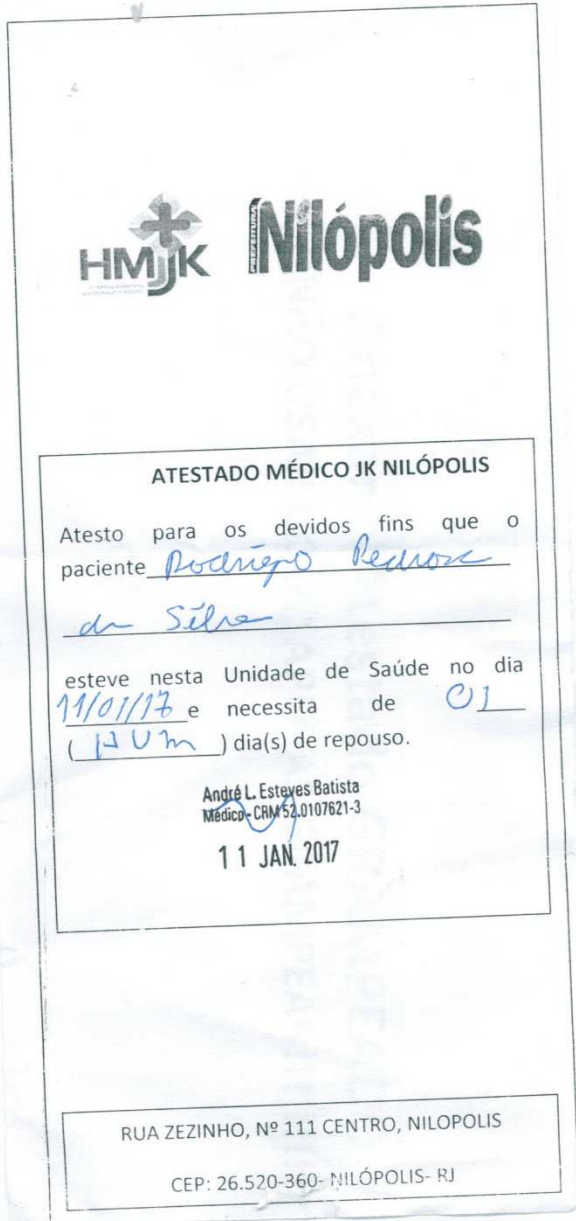 HMJJK PREFEITURA Nilópolis
ATESTADO MÉDICO JK NILÓPOLIS
Atesto para os devidos fins que o
paciente Rodrigo Pedrosa
da Silva
esteve nesta Unidade de Saúde no dia
11/01/17 e necessita de 01
( Um ) dia(s) de repouso.
André L. Esteves Batista
Médico - CRM 52.0107621-3
11 JAN. 2017
RUA ZEZINHO, Nº 111 CENTRO, NILOPOLIS
CEP: 26.520-360- NILÓPOLIS- RJ